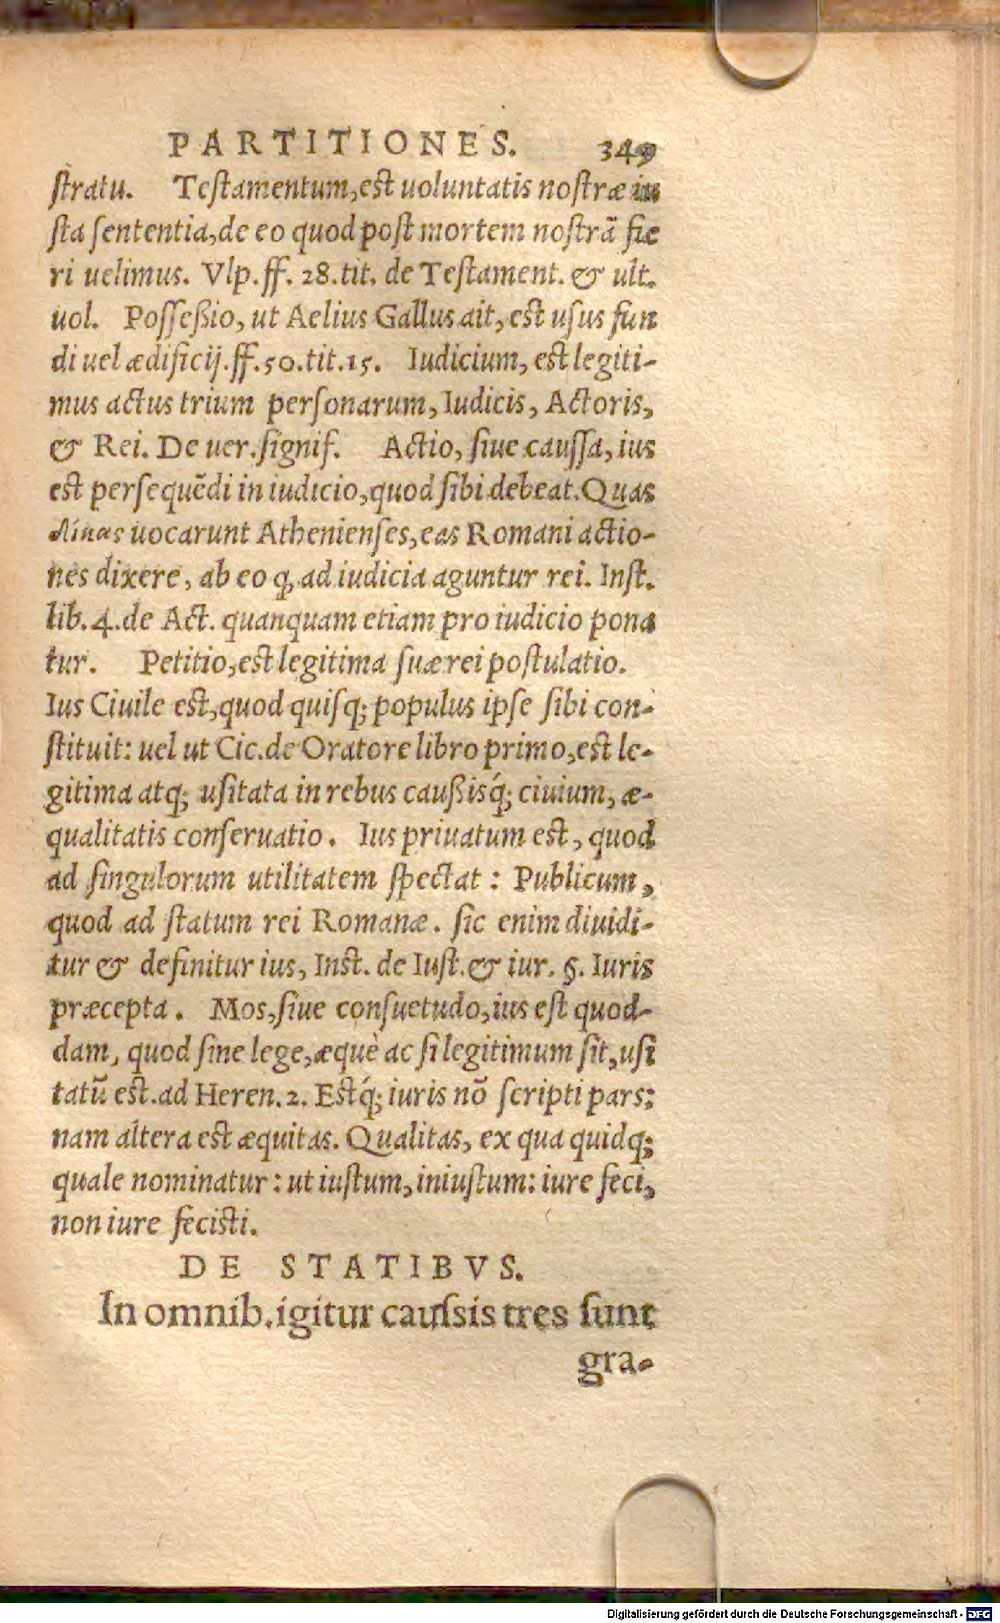 PARTITIONES. 349
ſtratu. Teſtamentum, eſt uoluntatis noſtræ iu
ſta ſententia, de eo quod poſt mortem noſtrā fie
ri uelimus. Vlp. ff. 28. tit. de Teſtament. & ult.
uol. Poſſeßio, ut Aelius Gallus ait, eſt uſus fun
di uel ædificij. ff. 50. tit. 15. Iudicium, eſt legiti-
mus actus trium perſonarum, Iudicis, Actoris,
& Rei. De uer. ſignif. Actio, ſiue cauſſa, ius
eſt perſequēdi in iudicio, quod ſibi debeat. Quas
uocarunt Athenienſes, eas Romani actio-
nes dixere, ab eo q̧ ad iudicia aguntur rei. Inſt.
lib. 4. de Act. quanquam etiam pro iudicio pona
tur. Petitio, eſt legitima ſuæ rei poſtulatio.
Ius Ciuile eſt, quod quiſq; populus ipſe ſibi con-
ſtituit: uel ut Cic. de Oratore libro primo, eſt le-
gitima atq; uſitata in rebus caußisq́; ciuium, æ-
qualitatis conſeruatio. Ius priuatum eſt, quod
ad ſingulorum utilitatem ſpectat: Publicum,
quod ad ſtatum rei Romanæ. ſic enim diuidi-
tur & definitur ius, Inſt. de Iuſt. & iur. §. Iuris
præcepta. Mos, ſiue conſuetudo, ius eſt quod-
dam, quod ſine lege, æquè ac ſi legitimum ſit, uſi
tatū eſt. ad Heren. 2. Eſtq́; iuris nō ſcripti pars:
nam altera eſt æquitas. Qualitas, ex qua quidq;
quale nominatur: ut iuſtum, iniuſtum: iure feci,
non iure feciſti.
DE STATIBVS.
In omnib. igitur cauſsis tres ſunt
gra-
Digitalisierung gefördert durch die Deutsche Forschungsgemeinschaft - DFG